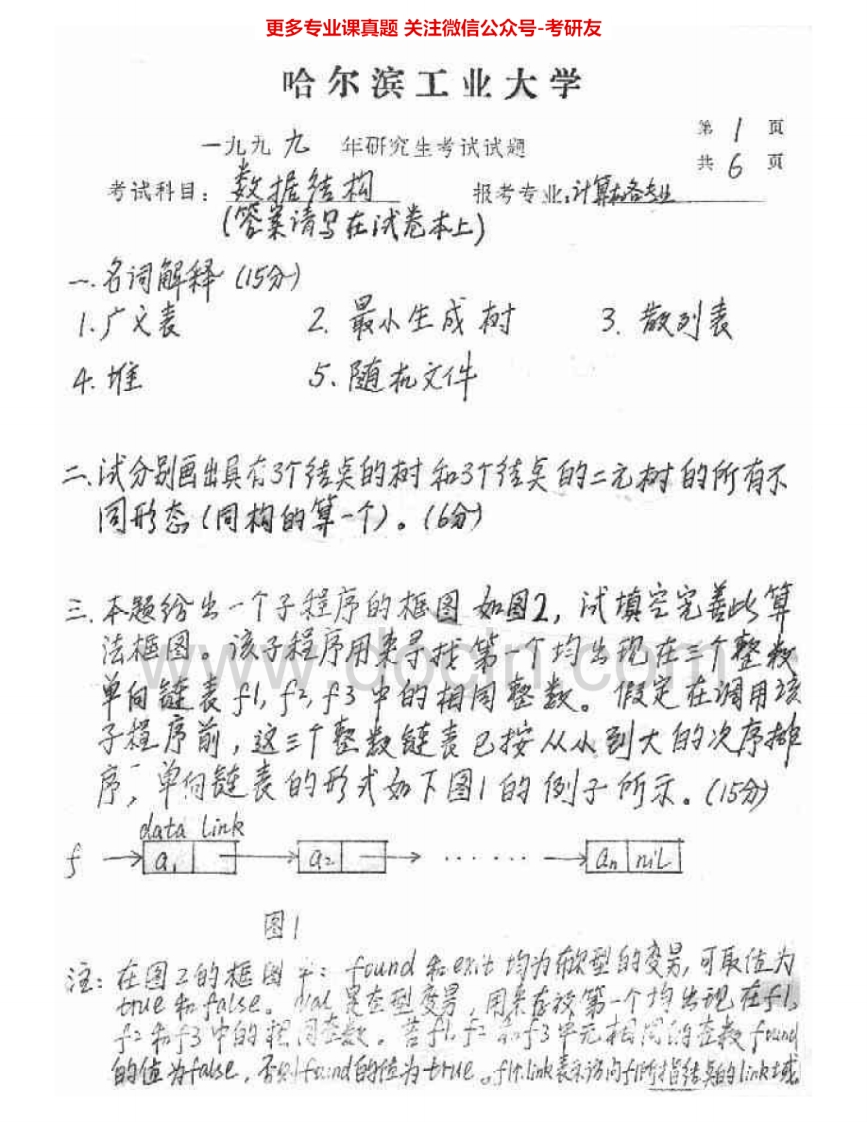 更多专业课真题 关注微信公众号-考研友
哈尔滨工业大学
第 1 页
一九九 九 年研究生考试试题
共 6 页
考试科目: 数据结构 报考专业:计算机各专业
(答案请写在试卷本上)
一.名词解释 (15分)
1.广义表 2. 最小生成树 3. 散列表
4. 堆 5. 随机文件
二.试分别画出具有3个结点的树和3个结点的二元树的所有不
同形态(同构的算一个)。(6分)
三.本题给出一个子程序的框图如图2,试填空完善此算
法框图。该子程序用来寻找第一个均出现在三个整数
单向链表f1, f2, f3中的相同整数。假定在调用该
子程序前,这三个整数链表已按从小到大的次序排
序,单向链表的形式如下图1的例子所示。(15分)
data link
f a1 a2 ...... an nil
图1
注: 在图2的框图中: found和exit均为布尔型的变量,可取值为
true和false。val是整型变量,用来存放第一个均出现在f1,
f2和f3中的相同整数。若f1, f2和f3中无相同的整数found
的值为false,否则found的值为true。f1↑.link表示访问f1所指结点的link域
www.docin.com